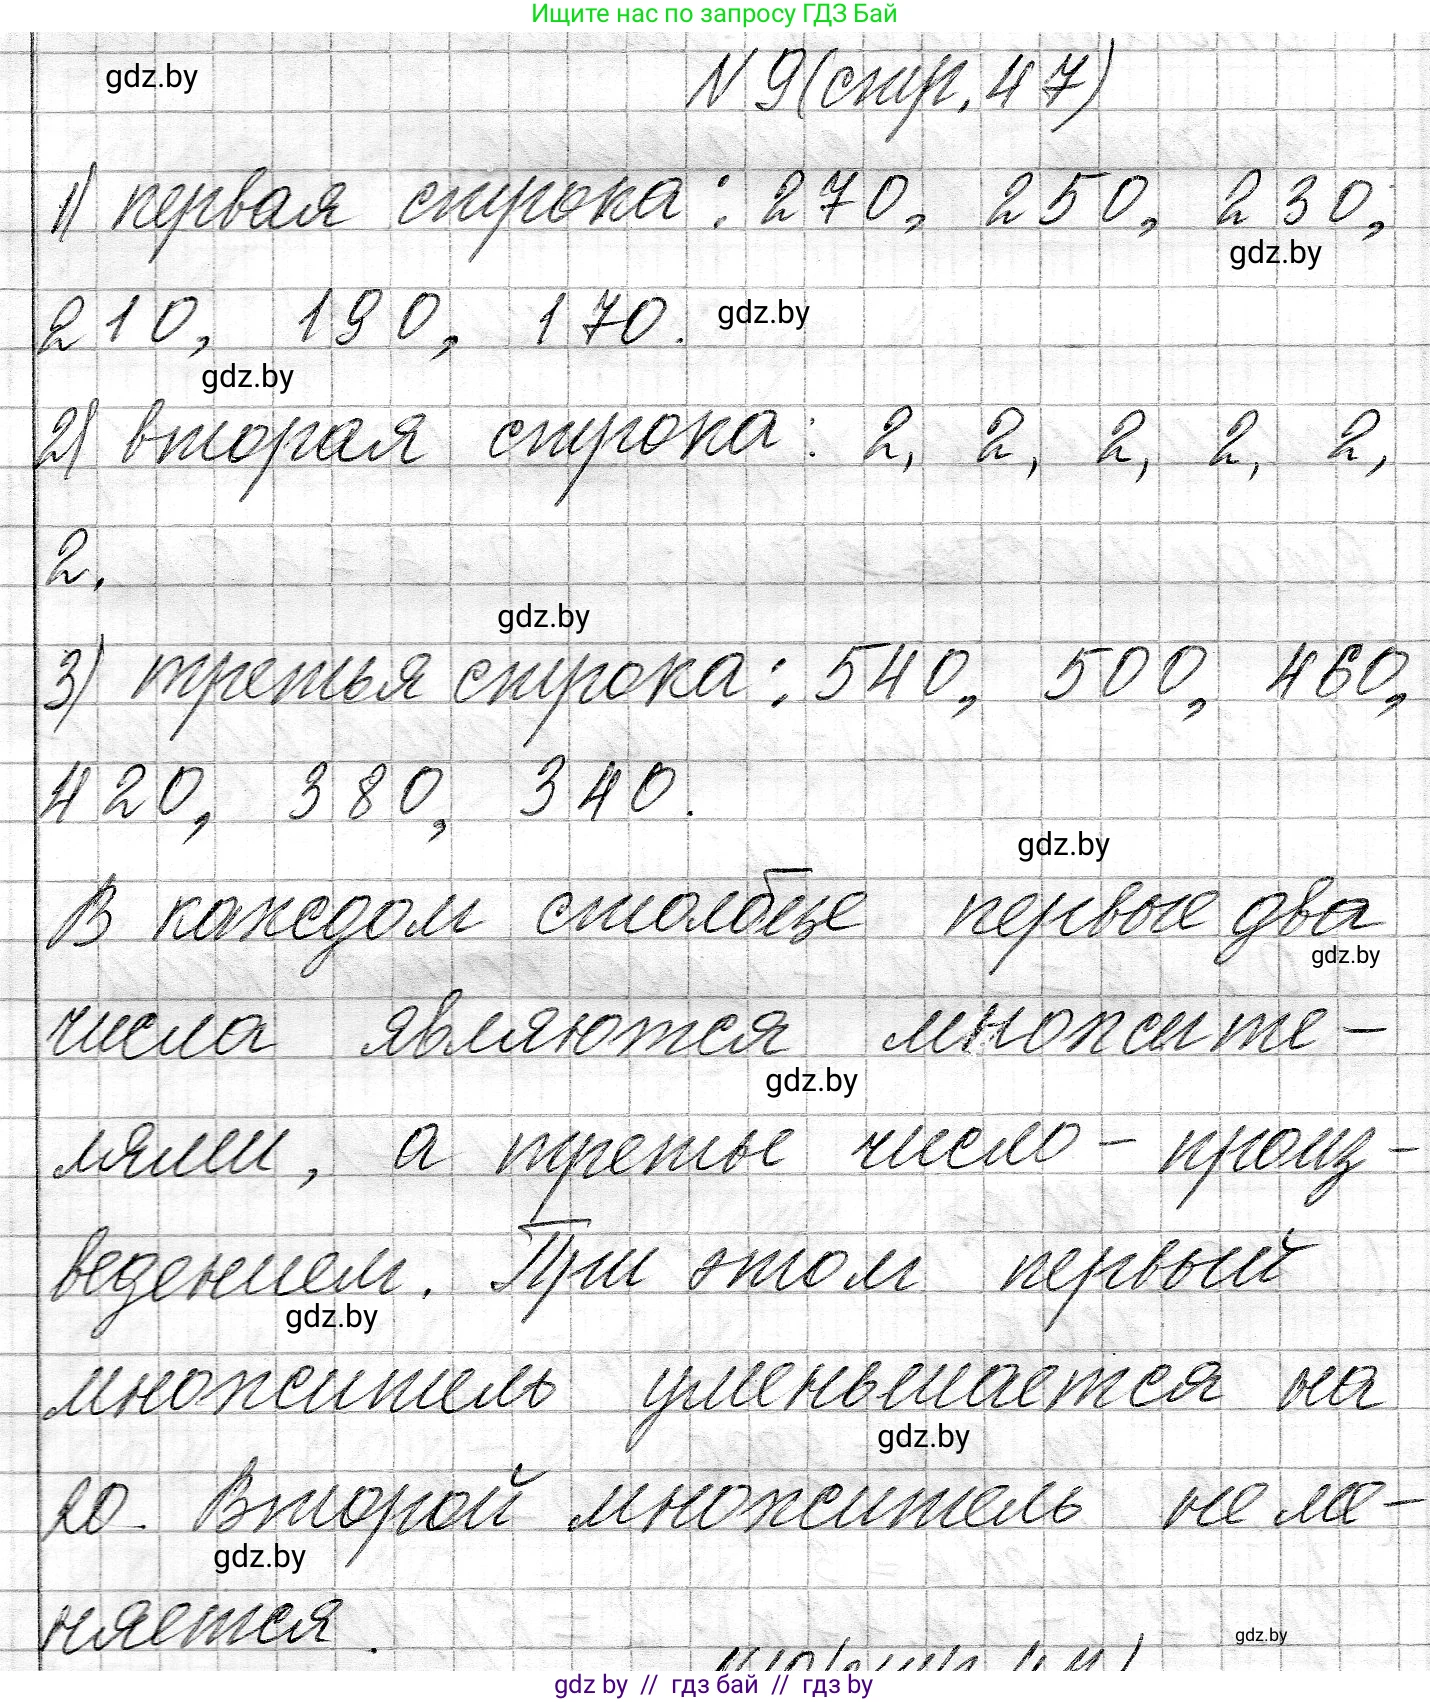 Ищите нас по запросу ГДЗ Бай
gdz.by
N 9 (стр. 47)
1) первая строка: 270, 250, 230,
gdz.by
210, 190, 170.
gdz.by
gdz.by
2) вторая строка: 2, 2, 2, 2, 2,
2.
gdz.by
3) третья строка: 540, 500, 460,
420, 380, 340.
gdz.by
В каждом столбце первые два
gdz.by
числа являются множите-
gdz.by
лями, а третье число - произ-
ведением. При этом первый
gdz.by
множитель уменьшается на
gdz.by
20. Второй множитель не ме-
gdz.by
няется.
gdz.by
gdz.by // гдз бай // гдз by